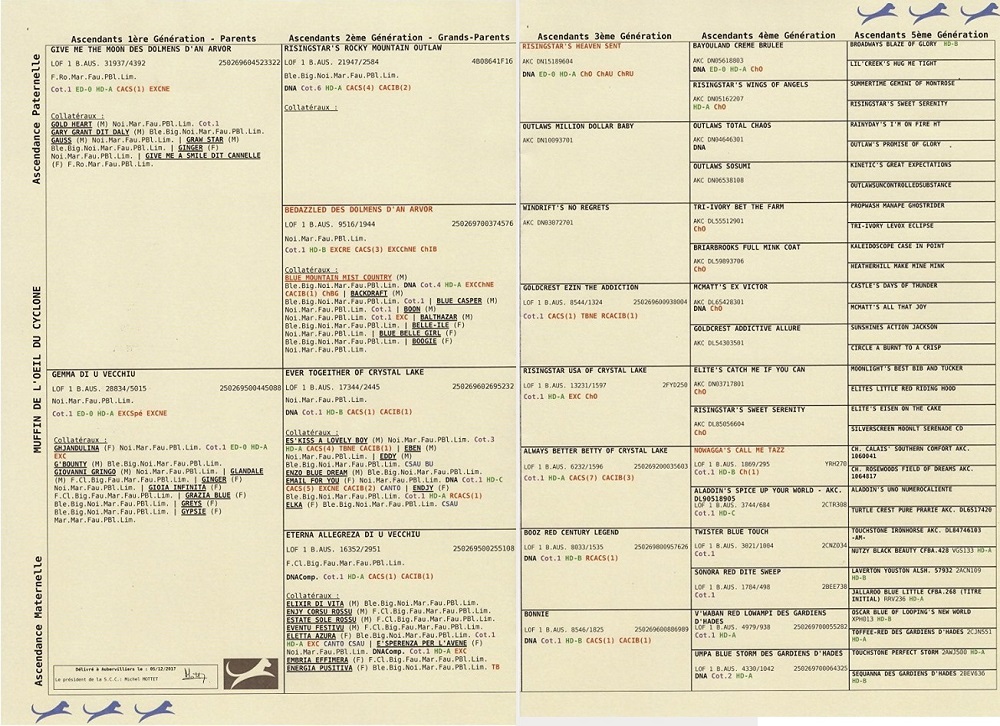 Ascendants 1ère Génération - Parents
Ascendants 2ème Génération - Grands-Parents
Ascendants 3ème Génération
Ascendants 4ème Génération
Ascendants 5ème Génération
Ascendance Paternelle
MUFFIN DE L'OEIL DU CYCLONE
Ascendance Maternelle
GIVE ME THE MOON DES DOLMENS D'AN ARVOR
LOF 1 B.AUS. 31937/4392 250269604523322
F.Ro.Mar.Fau.PBl.Lim.
Cot.1 ED-0 HD-A CACS(1) EXCNE
Collatéraux :
GOLD HEART (M) Noi.Mar.Fau.PBl.Lim. Cot.1
GARY GRANT DIT DALY (M) Ble.Big.Noi.Mar.Fau.PBl.Lim.
GAUSS (M) Noi.Mar.Fau.PBl.Lim. | GRAW STAR (M)
Ble.Big.Noi.Mar.Fau.PBl.Lim. | GINGER (F)
Noi.Mar.Fau.PBl.Lim. | GIVE ME A SMILE DIT CANNELLE
(F) F.Ro.Mar.Fau.PBl.Lim.
GEMMA DI U VECCHIU
LOF 1 B.AUS. 28834/5015 250269500445088
Cot.1 ED-0 HD-A EXCSpé EXCNE
Collatéraux :
GHJANDULINA (F) Noi.Mar.Fau.PBl.Lim. Cot.1 ED-0 HD-A
EXC
G'BOUNTY (M) Ble.Big.Noi.Mar.Fau.PBl.Lim.
GIOVANNI GRINGO (M) Noi.Mar.Fau.PBl.Lim. | GLANDALE
(M) F.Cl.Big.Fau.Mar.Fau.PBl.Lim. | GINGER (F)
Noi.Mar.Fau.PBl.Lim. | GIOIA INFINITA (F)
F.Cl.Big.Fau.Mar.Fau.PBl.Lim. | GRAZIA BLUE (F)
Ble.Big.Noi.Mar.Fau.PBl.Lim. | GREYS (F)
Ble.Big.Noi.Mar.Fau.PBl.Lim. | GYPSIE (F)
Mar.Mar.Fau.PBl.Lim.
Délivré à Aubervilliers le : 05/12/2017
Le président de la S.C.C.: Michel MOTTET
RISINGSTAR'S ROCKY MOUNTAIN OUTLAW
LOF 1 B.AUS. 21947/2584 4B08641F16
Ble.Big.Noi.Mar.Fau.PBl.Lim.
DNA Cot.6 HD-A CACS(4) CACIB(2)
Collatéraux :
BEDAZZLED DES DOLMENS D'AN ARVOR
LOF 1 B.AUS. 9516/1944 250269700374576
Noi.Mar.Fau.PBl.Lim.
Cot.1 HD-B EXCRE CACS(3) EXCChNE ChIB
Collatéraux :
BLUE MOUNTAIN MIST COUNTRY (M)
Ble.Big.Noi.Mar.Fau.PBl.Lim. DNA Cot.4 HD-A EXCChNE
CACIB(1) ChBG | BACKDRAFT (M)
Ble.Big.Noi.Mar.Fau.PBl.Lim. Cot.1 | BLUE CASPER (M)
Noi.Mar.Fau.PBl.Lim. Cot.1 | BOON (M)
Noi.Mar.Fau.PBl.Lim. Cot.1 EXC | BALTHAZAR (M)
Ble.Big.Noi.Mar.Fau.PBl.Lim. | BELLE-ILE (F)
Noi.Mar.Fau.PBl.Lim. | BLUE BELLE GIRL (F)
Ble.Big.Noi.Mar.Fau.PBl.Lim. | BOOGIE (F)
Noi.Mar.Fau.PBl.Lim.
EVER TOGEITHER OF CRYSTAL LAKE
LOF 1 B.AUS. 17344/2445 250269602695232
Noi.Mar.Fau.PBl.Lim.
DNA Cot.1 HD-B CACS(1) CACIB(1)
Collatéraux :
ES'KISS A LOVELY BOY (M) Noi.Mar.Fau.PBl.Lim. Cot.3
HD-A CACS(4) TBNE CACIB(1) | EBEN (M)
Noi.Mar.Fau.PBl.Lim. | EDDY (M)
Ble.Big.Noi.Mar.Fau.PBl.Lim. CSAU BU
ENZO BLUE DREAM (M) Ble.Big.Noi.Mar.Fau.PBl.Lim.
EMAIL FOR YOU (F) Noi.Mar.Fau.PBl.Lim. DNA Cot.1 HD-C
CACS(5) EXCNE CACIB(2) CANTO | ENDJY (F)
Ble.Big.Noi.Mar.Fau.PBl.Lim. Cot.1 HD-A RCACS(1)
ELKA (F) Ble.Big.Noi.Mar.Fau.PBl.Lim. CSAU
ETERNA ALLEGREZA DI U VECCHIU
LOF 1 B.AUS. 16352/2951 250269500255108
F.Cl.Big.Fau.Mar.Fau.PBl.Lim.
DNAComp. Cot.1 HD-A CACS(1) CACIB(1)
Collatéraux :
ELIXIR DI VITA (M) Ble.Big.Noi.Mar.Fau.PBl.Lim.
ENJY CORSU ROSSU (M) F.Cl.Big.Fau.Mar.Fau.PBl.Lim.
ESTATE SOLE ROSSU (M) F.Cl.Big.Fau.Mar.Fau.PBl.Lim.
EVENTU FESTIVU (M) F.Cl.Big.Fau.Mar.Fau.PBl.Lim.
ELETTA AZURA (F) Ble.Big.Noi.Mar.Fau.PBl.Lim. Cot.1
HD-A EXC CANTO CSAU | E'SPERENZA PER L'AVENE (F)
Noi.Mar.Fau.PBl.Lim. DNAComp. Cot.1 HD-A EXC
EMBRIA EFFIMERA (F) F.Cl.Big.Fau.Mar.Fau.PBl.Lim.
ENERGIA PUSITIVA (F) Ble.Big.Noi.Mar.Fau.PBl.Lim. TB
RISINGSTAR'S HEAVEN SENT
AKC DN15189604
DNA ED-0 HD-A ChO ChAU ChRU
OUTLAWS MILLION DOLLAR BABY
AKC DN10093701
WINDRIFT'S NO REGRETS
AKC DN03072701
GOLDCREST EZIN THE ADDICTION
LOF 1 B.AUS. 8544/1324 250269600938004
Cot.1 CACS(1) TBNE RCACIB(1)
RISINGSTAR USA OF CRYSTAL LAKE
LOF 1 B.AUS. 13231/1597 2FYD250
Cot.1 HD-A EXC ChO
ALWAYS BETTER BETTY OF CRYSTAL LAKE
LOF 1 B.AUS. 6232/1596 250269200035603
Cot.1 HD-A CACS(7) CACIB(3)
BOOZ RED CENTURY LEGEND
LOF 1 B.AUS. 8033/1535 250269800957626
Cot.1 HD-B RCACS(1)
BONNIE
LOF 1 B.AUS. 8546/1825 250269600886989
DNA Cot.1 HD-B CACS(1) CACIB(1)
BAYOULAND CREME BRULEE
AKC DN05618803
DNA ED-0 HD-A ChO
RISINGSTAR'S WINGS OF ANGELS
AKC DN05162207
HD-A ChO
OUTLAWS TOTAL CHAOS
AKC DN04646301
DNA
OUTLAWS SOSUMI
AKC DN06538108
TRI-IVORY BET THE FARM
AKC DL55512901
ChO
BRIARBROOKS FULL MINK COAT
AKC DL59893706
ChO
MCMATT'S EX VICTOR
AKC DL65428301
DNA ChO
GOLDCREST ADDICTIVE ALLURE
AKC DL54303501
ELITE'S CATCH ME IF YOU CAN
AKC DN03717801
ChO
RISINGSTAR'S SWEET SERENITY
AKC DL85056604
ChO
NOWAGGA'S CALL ME TAZZ
LOF 1 B.AUS. 1869/295 YRH270
Cot.1 HD-B Ch(1)
ALADDIN'S SPICE UP YOUR WORLD - AKC.
DL90518905
LOF 1 B.AUS. 3744/684 2CTR308
Cot.1 HD-C
TWISTER BLUE TOUCH
LOF 1 B.AUS. 3021/1004 2CNZ034
Cot.1
SONORA RED DITE SWEEP
LOF 1 B.AUS. 1784/498 2BEE738
Cot.1
V'WABAN RED LOWAMPI DES GARDIENS
D'HADES
LOF 1 B.AUS. 4979/938 250269700055282
Cot.1 HD-A
UMPA BLUE STORM DES GARDIENS D'HADES
LOF 1 B.AUS. 4330/1042 250269700064325
DNA Cot.2 HD-A
BROADWAYS BLAZE OF GLORY HD-B
LIL'CREEK'S HUG ME TIGHT
SUMMERTIME GEMINI OF MONTROSE
RISINGSTAR'S SWEET SERENITY
RAINYDAY'S I'M ON FIRE HT
OUTLAW'S PROMISE OF GLORY
KINETIC'S GREAT EXPECTATIONS
OUTLAWSUNCONTROLLEDSUBSTANCE
PROPWASH MANAPE GHOSTRIDER
TRI-IVORY LEVOX ECLIPSE
KALEIDOSCOPE CASE IN POINT
HEATHERHILL MAKE MINE MINK
CASTLE'S DAYS OF THUNDER
MCMATT'S ALL THAT JOY
SUNSHINES ACTION JACKSON
CIRCLE A BURNT TO A CRISP
MOONLIGHT'S BEST BIB AND TUCKER
ELITES LITTLE RED RIDING HOOD
ELITE'S EISEN ON THE CAKE
SILVERSCREEN MOONLT SERENADE CD
CH. CALAIS' SOUTHERN COMFORT AKC.
1066041
CH. ROSEWOODS FIELD OF DREAMS AKC.
1064817
ALADDIN'S UNO NUMEROCALIENTE
TURTLE CREST PURE PRARIE AKC. DL6517420
TOUCHSTONE IRONHORSE AKC. DL84746103
-AM-
NUTZY BLACK BEAUTY CFBA.428 VGS133 HD-A
LAVERTON YOUSTON ALSH. 57932 2ACN109
HD-B
JALLAROO BLUE LITTLE CFBA.268 (TITRE
INITIAL) RRV236 HD-A
OSCAR BLUE OF LOOPING'S NEW WORLD
XPH013 HD-B
TOFFEE-RED DES GARDIENS D'HADES 2CJN551
HD-A
TOUCHSTONE PERFECT STORM 2AWJ500 HD-A
SEQUANNA DES GARDIENS D'HADES 2BEV636
HD-B